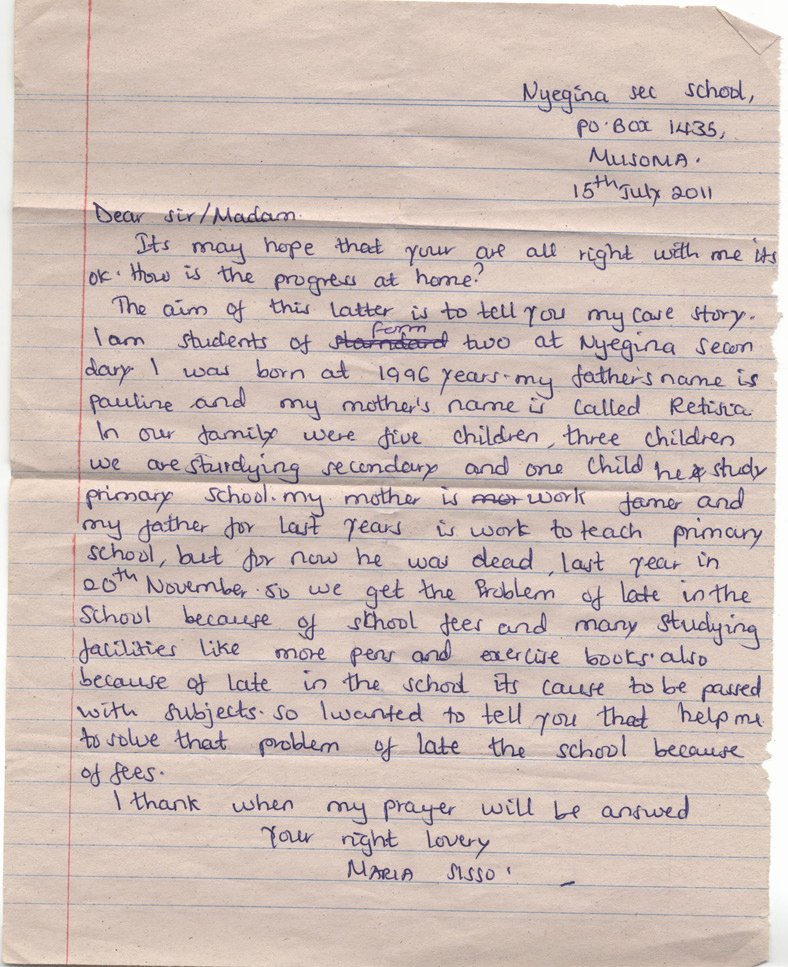 Nyegina sec school,
PO. BOX 1435,
MUSOMA.
15th July 2011
Dear sir/Madam.
Its may hope that your are all right with me its
ok. How is the progress at home?
The aim of this latter is to tell you my care story.
I am students of starndard form two at Nyegina secon
dary. I was born at 1996 years. my father's name is
pauline and my mother's name is called Retisia.
In our family were five children, three children
we are sturdying secondary and one child he study
primary school. my mother is mor work famer and
my father for last years is work to teach primary
school, but for now he was dead, last year in
20th November. so we get the Problem of late in the
school because of school fees and many studying
facilities like more pens and exercise books. also
because of late in the school its cause to be passed
with subjects. so I wanted to tell you that help me
to solve that problem of late the school because
of fees.
I thank when my prayer will be answed
Your right lovery
MARIA SISSO.